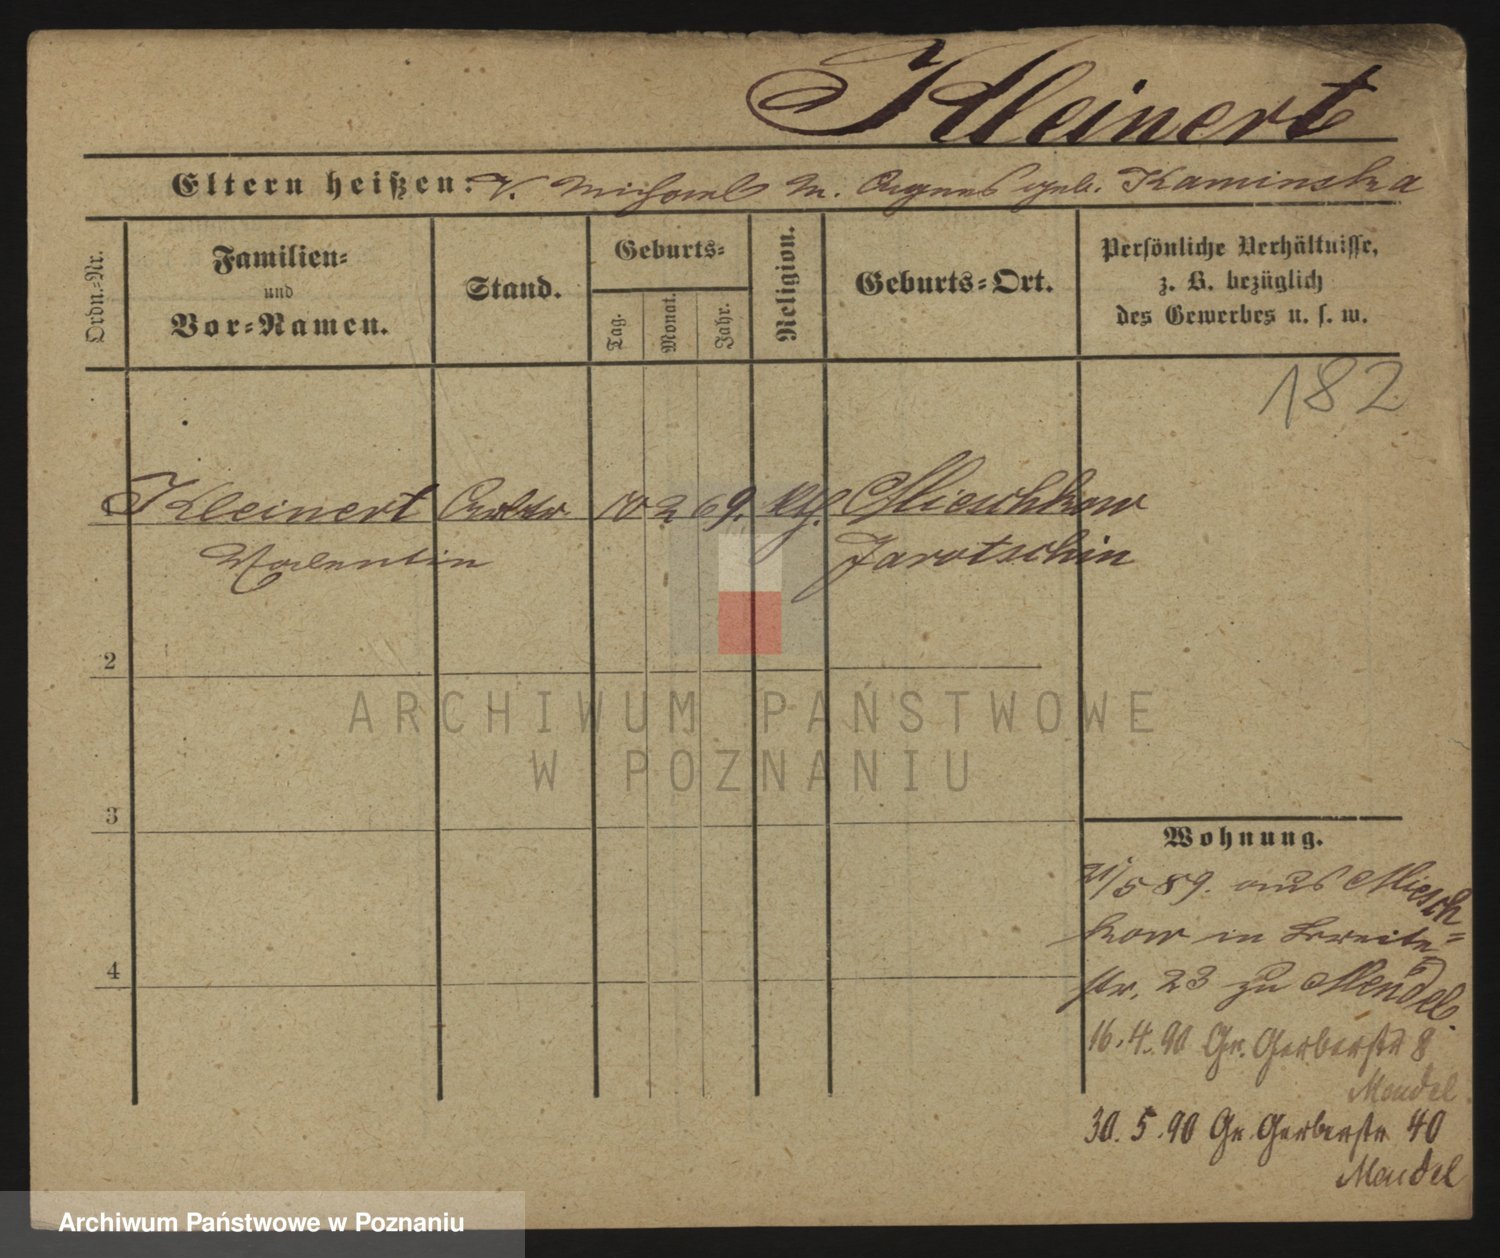 Kleinert
Eltern heißen: V. Michael M. Agnes geb. Kaminska
Ordn.-Nr.
Familien-
und
Vor-Namen.
Stand.
Geburts-
Tag.
Monat.
Jahr.
Religion.
Geburts-Ort.
Persönliche Verhältnisse,
z. B. bezüglich
des Gewerbes u. s. w.
182
1 Kleinert Arbtr 10 2 69. kth. Mieschkow
Valentin Jarotschin
2
3
4
Wohnung.
21/5 89. aus Miesch
kow in Breite-
str. 23 zu Mendel.
16.4.90 Gr. Gerberstr 8
Mendel
30.5.90 Gr. Gerberstr 40
Mendel
ARCHIWUM PAŃSTWOWE
W POZNANIU
Archiwum Państwowe w Poznaniu